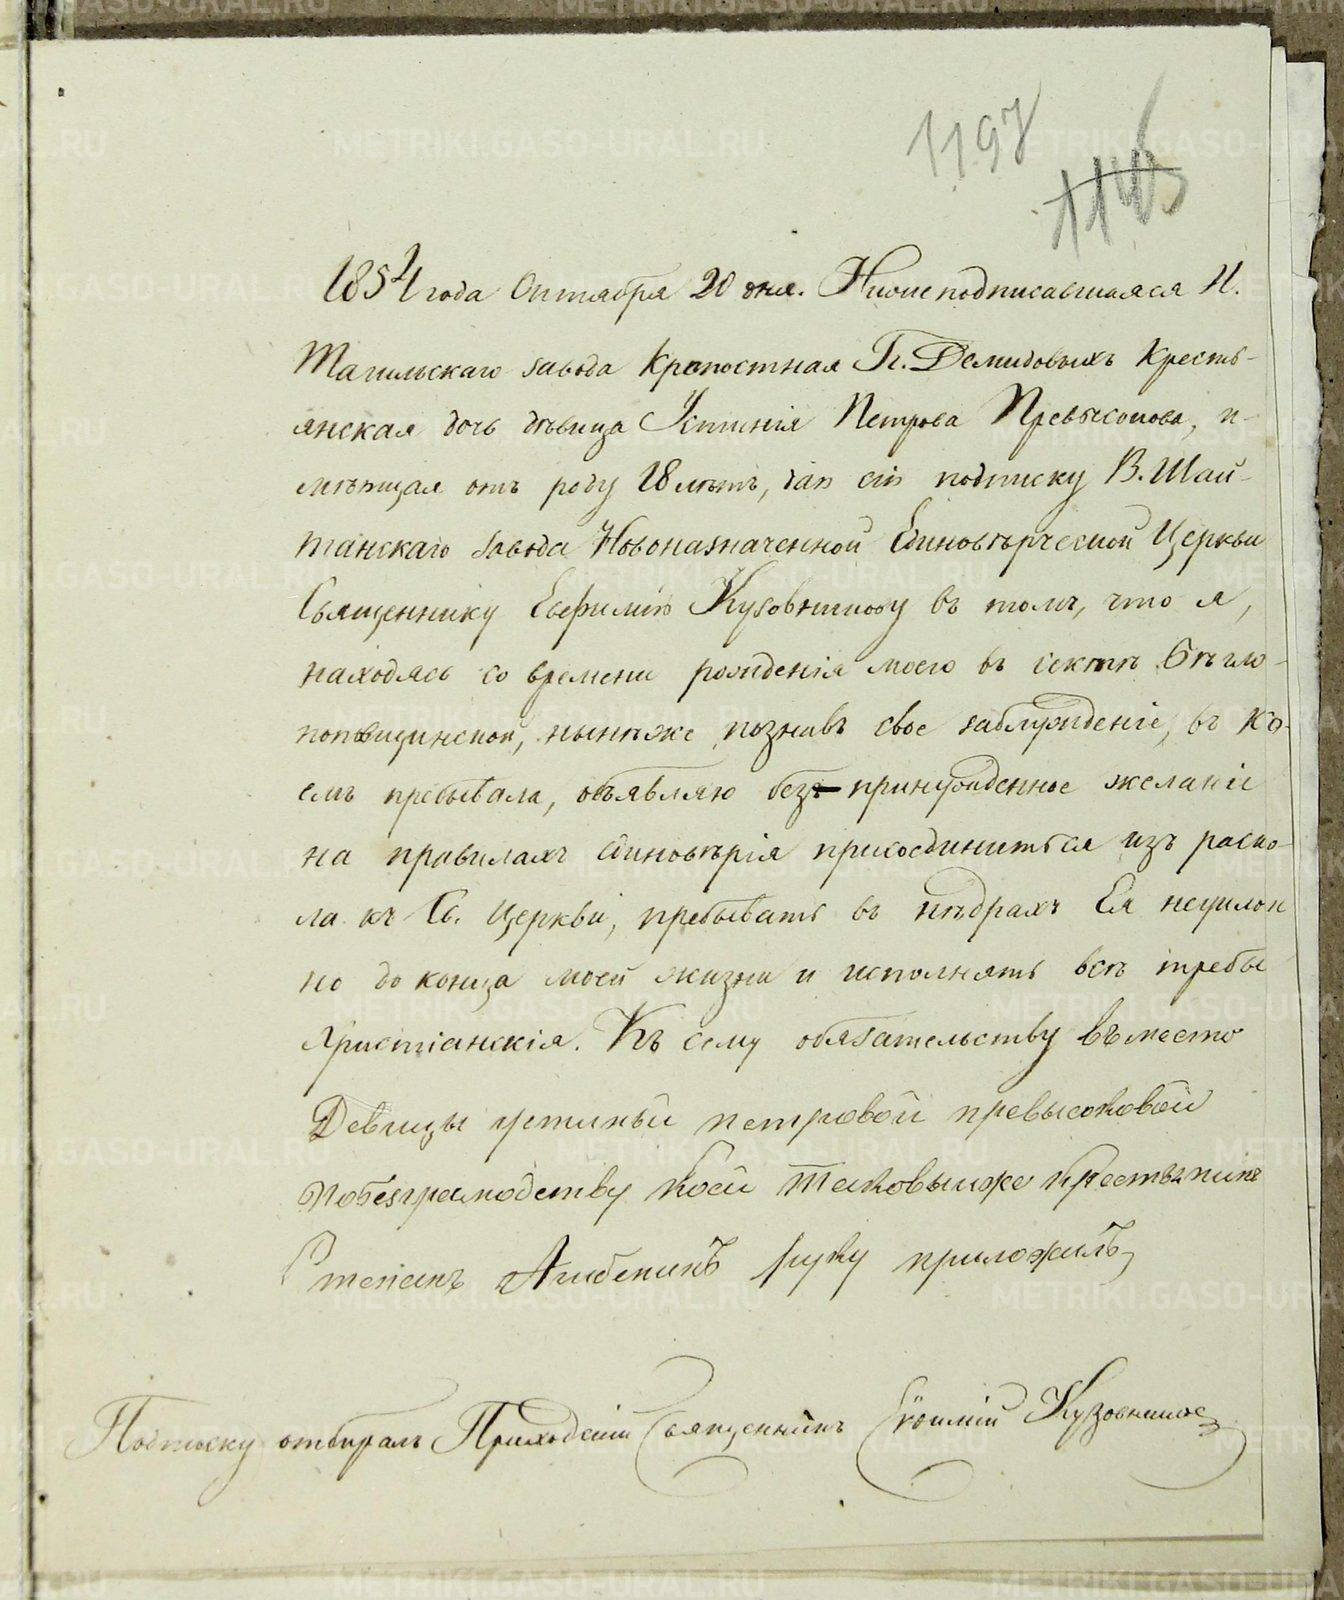 1197
1854 года Октября 20 дня. Нижеподписавшаяся Н.
Тагильскаго завода Крепостная Гг. Демидовыхъ Кресть-
янская дочь дѣвица Устинія Петрова Превысокова, и-
мѣющая отъ роду 18 лѣтъ, даю сію подписку В. Шай-
танскаго завода Новоназначенной Единовѣрческой Церкви
Священнику Евфимію Кузовникову въ томъ, что я,
находясь со времени рожденія моего въ сектѣ Бѣгло-
поповщинской, нынѣже познавъ свое заблужденіе, въ ко-
емъ пребывала, объявляю без принужденное желаніе
на правилахъ единовѣрія присоединиться изъ раско-
ла къ Св. Церкви, пребывать въ нѣдрахъ Ея неуклон
но до конца моей жизни и исполнять всѣ требы
христіанскія. Къ сему обязательству въместо
Девицы устиньи петровой превысоковой
побезграмодству коей таковыиже крестьянинъ
Степанъ руку приложилъ
Подписку отбиралъ Приходскій Священникъ Евфимій Кузовниковъ
METRIKI.GASO-URAL.RU